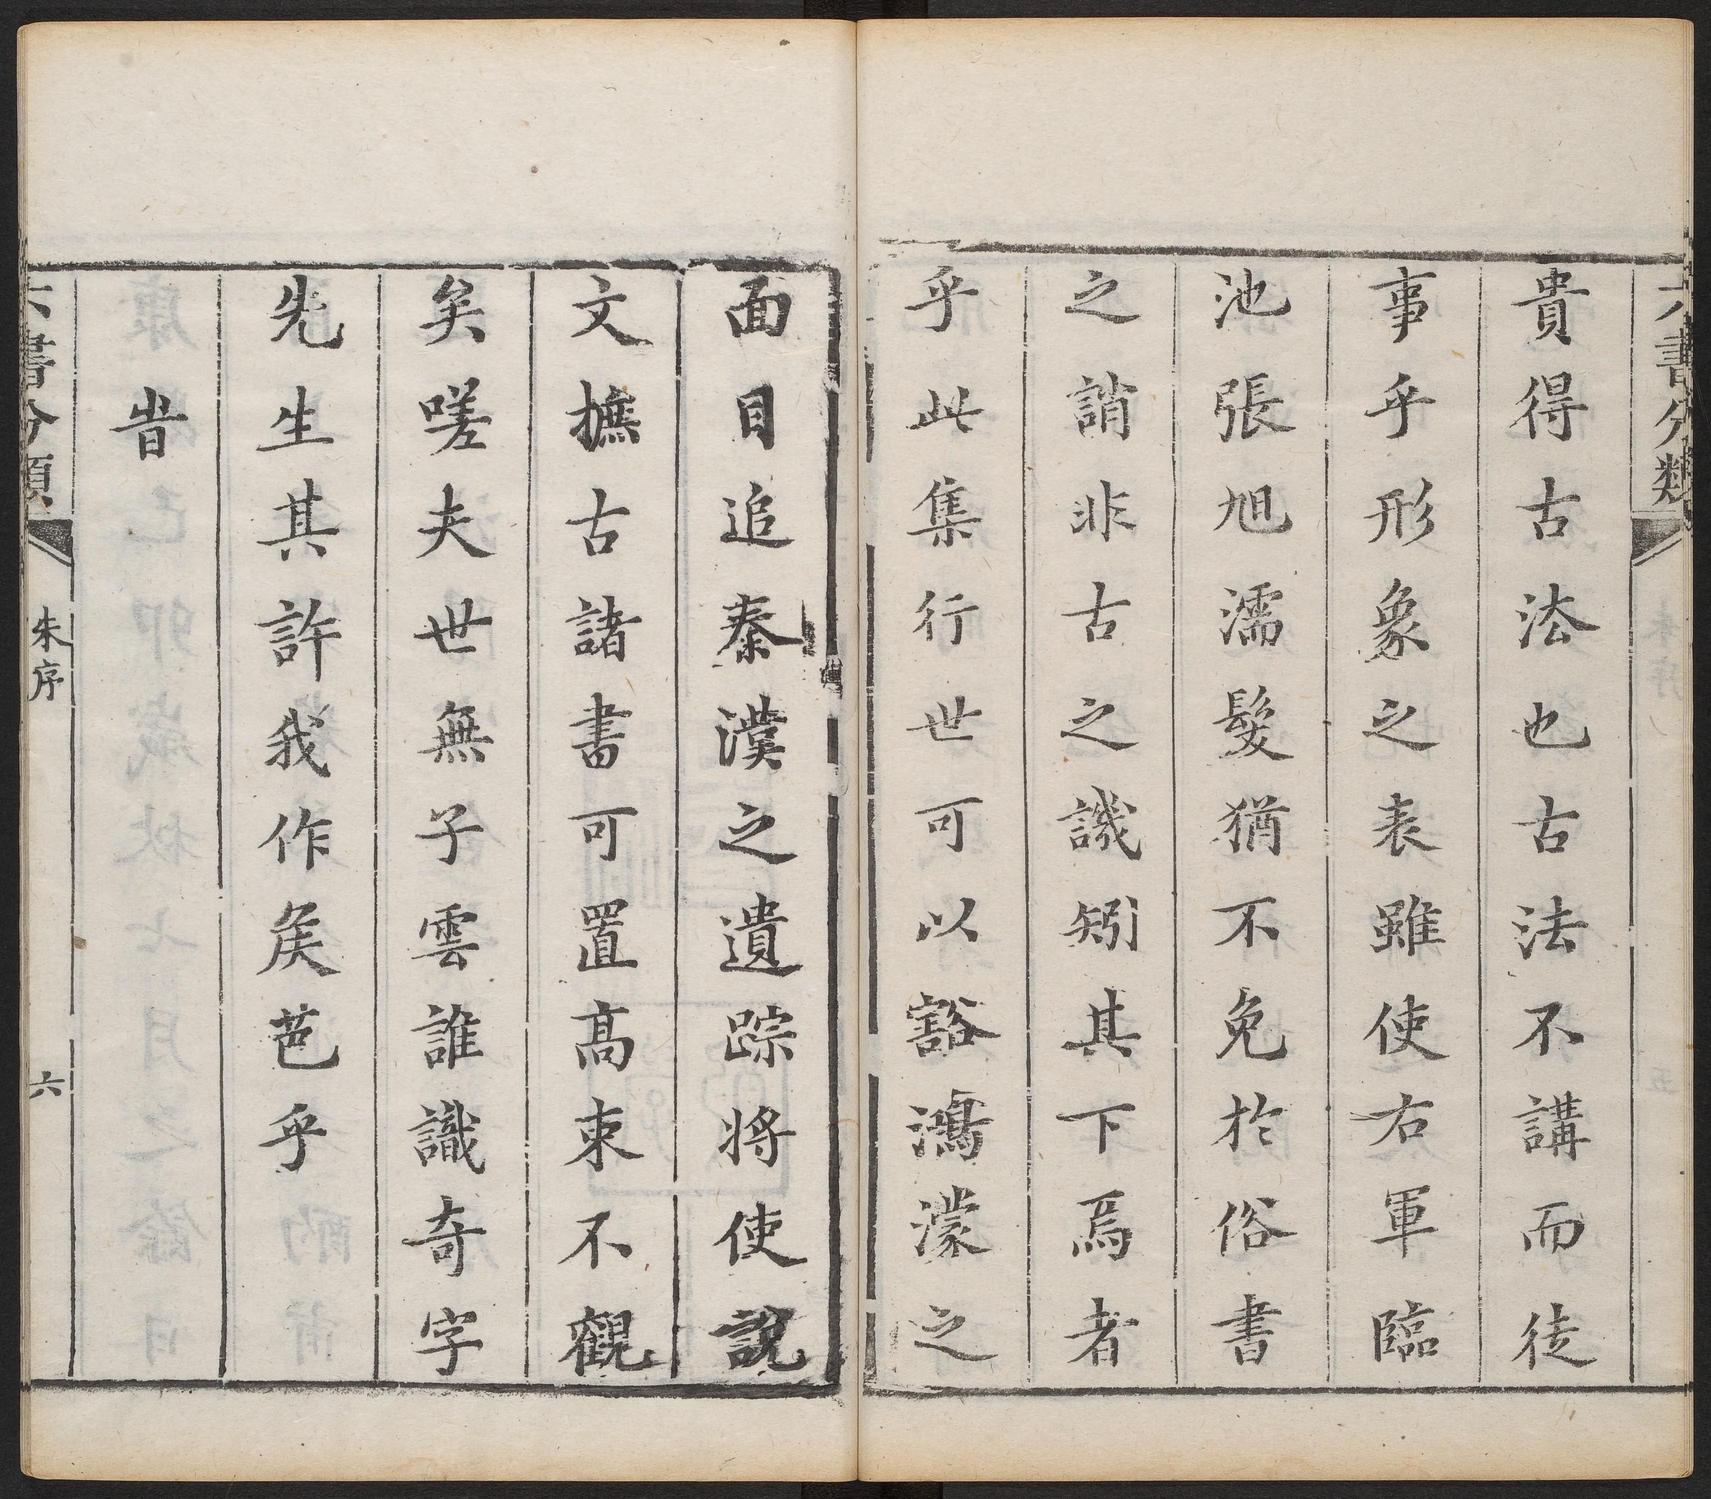 六書分類
貴得古法也古法不講而徒
事乎形象之表雖使右軍臨
池張旭濡髮猶不免於俗書
之誚非古之譏矧其下焉者
乎此集行世可以豁鴻濛之
面目追秦漢之遺踪將使說
文摭古諸書可置高束不觀
矣嗟夫世無子雲誰識奇字
先生其許我作矦芭乎
旹
六書分類
朱序
六